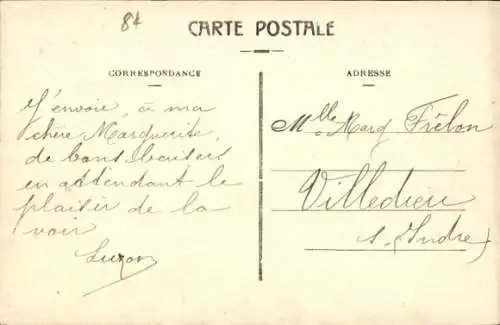 84
CARTE POSTALE
CORRESPONDANCE
ADRESSE
J'envoie, à ma
chère Marguerite,
de bons baisers
en attendant le
plaisir de la
voir
Suzon
Mlle Marg Frélon
Villedieu
s. (Indre)